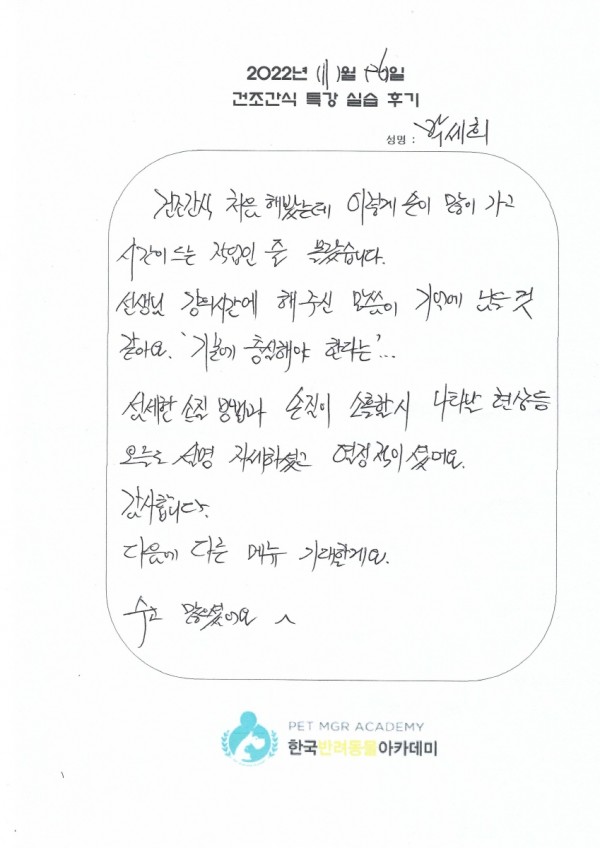 2022년 (11)월 (26)일
건조간식 특강 실습 후기
성명 : 박세희
건조간식 처음 해봤는데 이렇게 손이 많이 가고
시간이 드는 작업인 줄 몰랐습니다.
선생님 강의시간에 해주신 말씀이 기억에 남는 것
같아요. '기본에 충실해야 한다는'...
섬세한 손질 방법과 손질이 소홀할시 나타날 현상등
오늘도 설명 자세하셨고 열정적이셨어요.
감사합니다.
다음에 다른 메뉴 기대할게요.
수고 많으셨어요 ^
PET MGR ACADEMY
한국반려동물아카데미